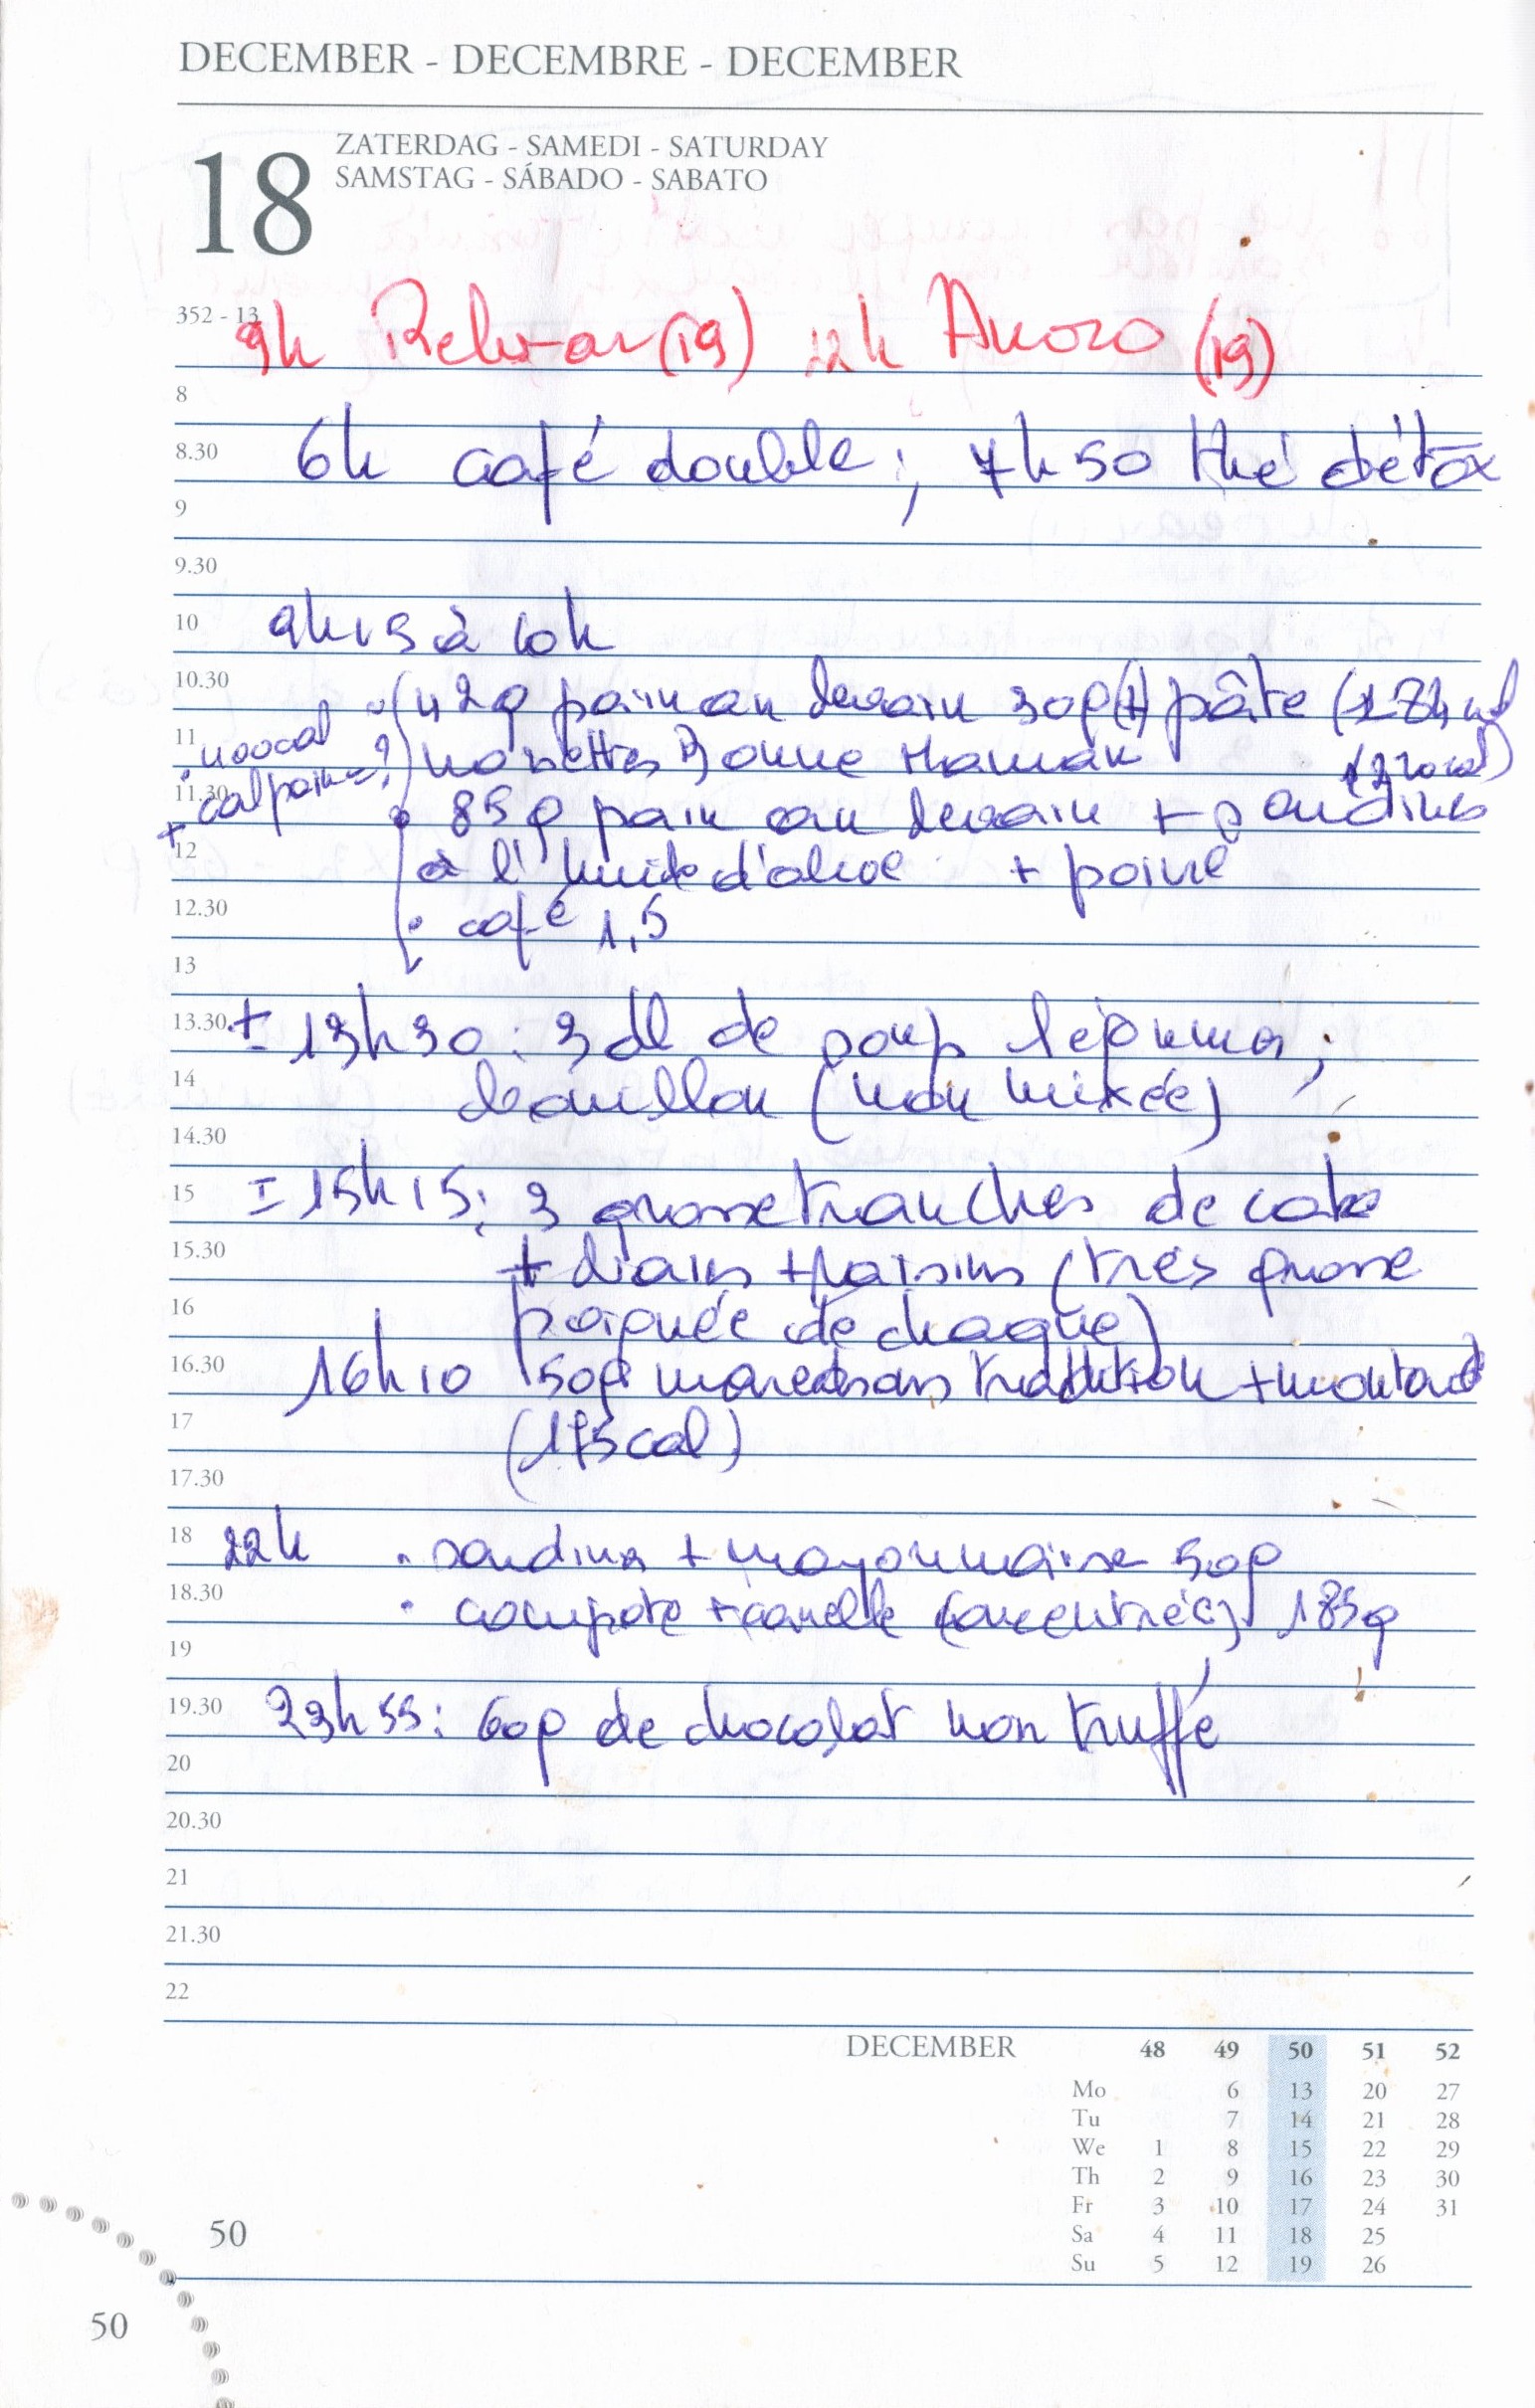 DECEMBER - DECEMBRE - DECEMBER
18
ZATERDAG - SAMEDI - SATURDAY
SAMSTAG - SÁBADO - SABATO
352 - 13
9h (19) 22h (19)
8
8.30 6h café double ; 7h50 thé détox
9
9.30
10 9h15 à 10h
10.30 42g pain au levain 30g (+) pâte
11 noisettes Bonne Maman
11.30 cal pain = ? • 85g pain au levain + sardines
12 à l'huile d'olive + poivre
12.30 • café 1,5
13
13.30 ± 13h30 : 3 dl de soup légumes ;
14 bouillon (non mixée)
14.30
15 ± 15h15 : 3 grosse tranches de cake
15.30 + raisins (très grosse
16 poignée de chaque)
16.30 16h10 50g tradition + moutarde
17 (175 cal)
17.30
18 22h • sardines + mayonnaise 50g
18.30 • compote + canelle (concentrée) 185g
19
19.30 23h55 : 60g de chocolat non truffé
20
20.30
21
21.30
22
DECEMBER 48 49 50 51 52
Mo 6 13 20 27
Tu 7 14 21 28
We 1 8 15 22 29
Th 2 9 16 23 30
Fr 3 10 17 24 31
Sa 4 11 18 25
Su 5 12 19 26
50
50